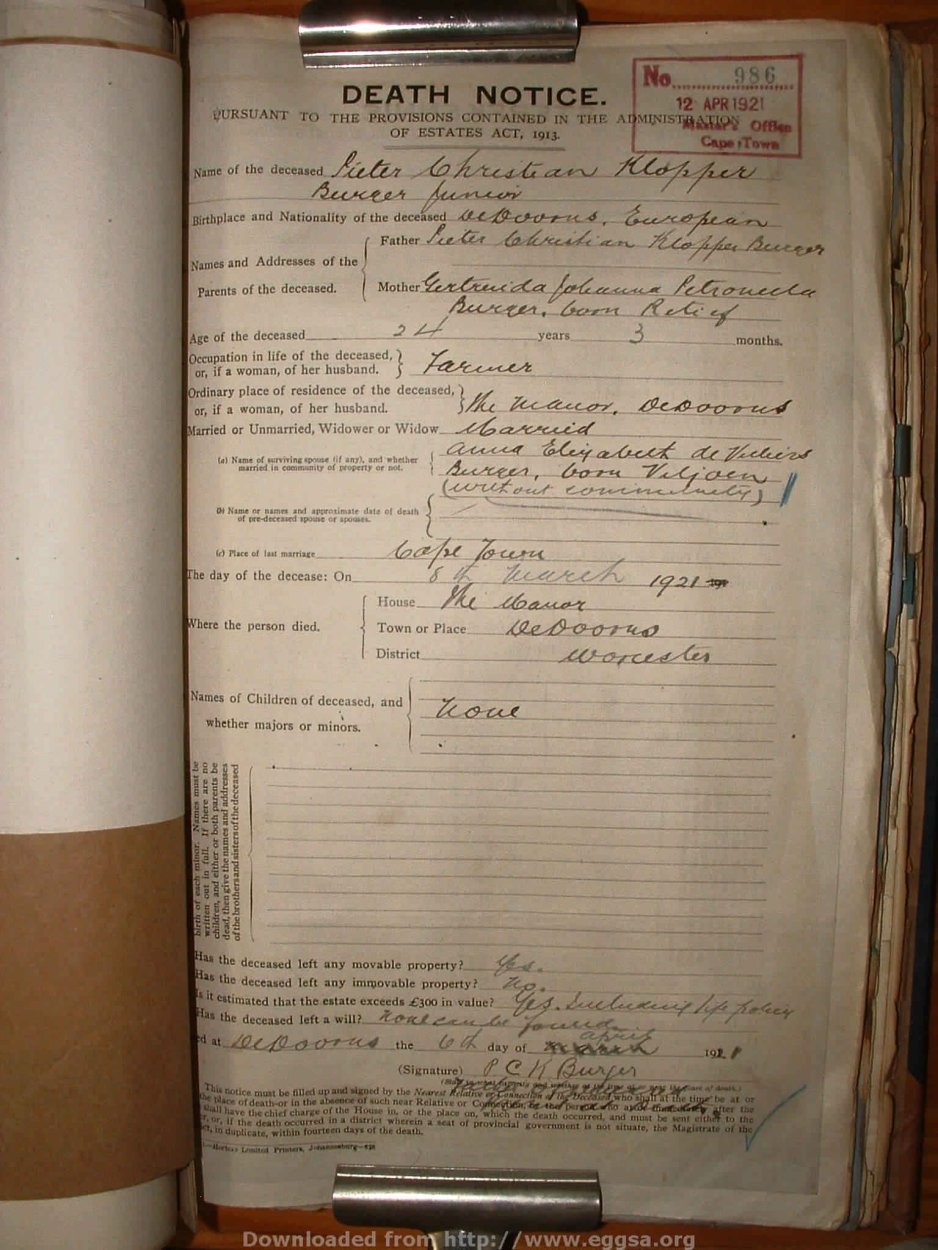 No. 986
12 APR 1921
Master's Office
Cape Town
DEATH NOTICE.
PURSUANT TO THE PROVISIONS CONTAINED IN THE ADMINISTRATION
OF ESTATES ACT, 1913.
Name of the deceased Pieter Christian Klopper
Burger Junior
Birthplace and Nationality of the deceased DeDoorns, European
Names and Addresses of the Parents of the deceased.
Father Pieter Christian Klopper Burger
Mother Gertreuida Johanna Petronella
Burger, born Retief
Age of the deceased 24 years 3 months.
Occupation in life of the deceased, or, if a woman, of her husband. Farmer
Ordinary place of residence of the deceased, or, if a woman, of her husband. The Manor, DeDoorns
Married or Unmarried, Widower or Widow Married
(a) Name of surviving spouse (if any), and whether married in community of property or not.
Anna Elizabeth de Villiers
Burger, born Viljoen
(without community)
(b) Name or names and approximate date of death
of pre-deceased spouse or spouses.
(c) Place of last marriage Cape Town
The day of the decease: On 8th March 1921
Where the person died.
House The Manor
Town or Place DeDoorns
District Worcester
Names of Children of deceased, and
whether majors or minors.
None
birth of each minor. Names must be
written out in full. If there are no
children, and either or both parents be
dead, then give the names and addresses
of the brothers and sisters of the deceased
Has the deceased left any movable property? Yes.
Has the deceased left any immovable property? No.
Is it estimated that the estate exceeds £300 in value? Yes. Including life policy
Has the deceased left a will? None can be found
ed at DeDoorns the 6th day of April 1921
(Signature) P C K Burger
This notice must be filled up and signed by the Nearest Relative or Connection of the Deceased who shall at the time be at or
the place of death—or in the absence of such near Relative or Connection, by the person who
shall have the chief charge of the House in, or the place on, which the death occurred, and must be sent either to the
or, if the death occurred in a district wherein a seat of provincial government is not situate, the Magistrate of the
in duplicate, within fourteen days of the death.
Limited Printers, Johannesburg
Downloaded from http://www.eggsa.org